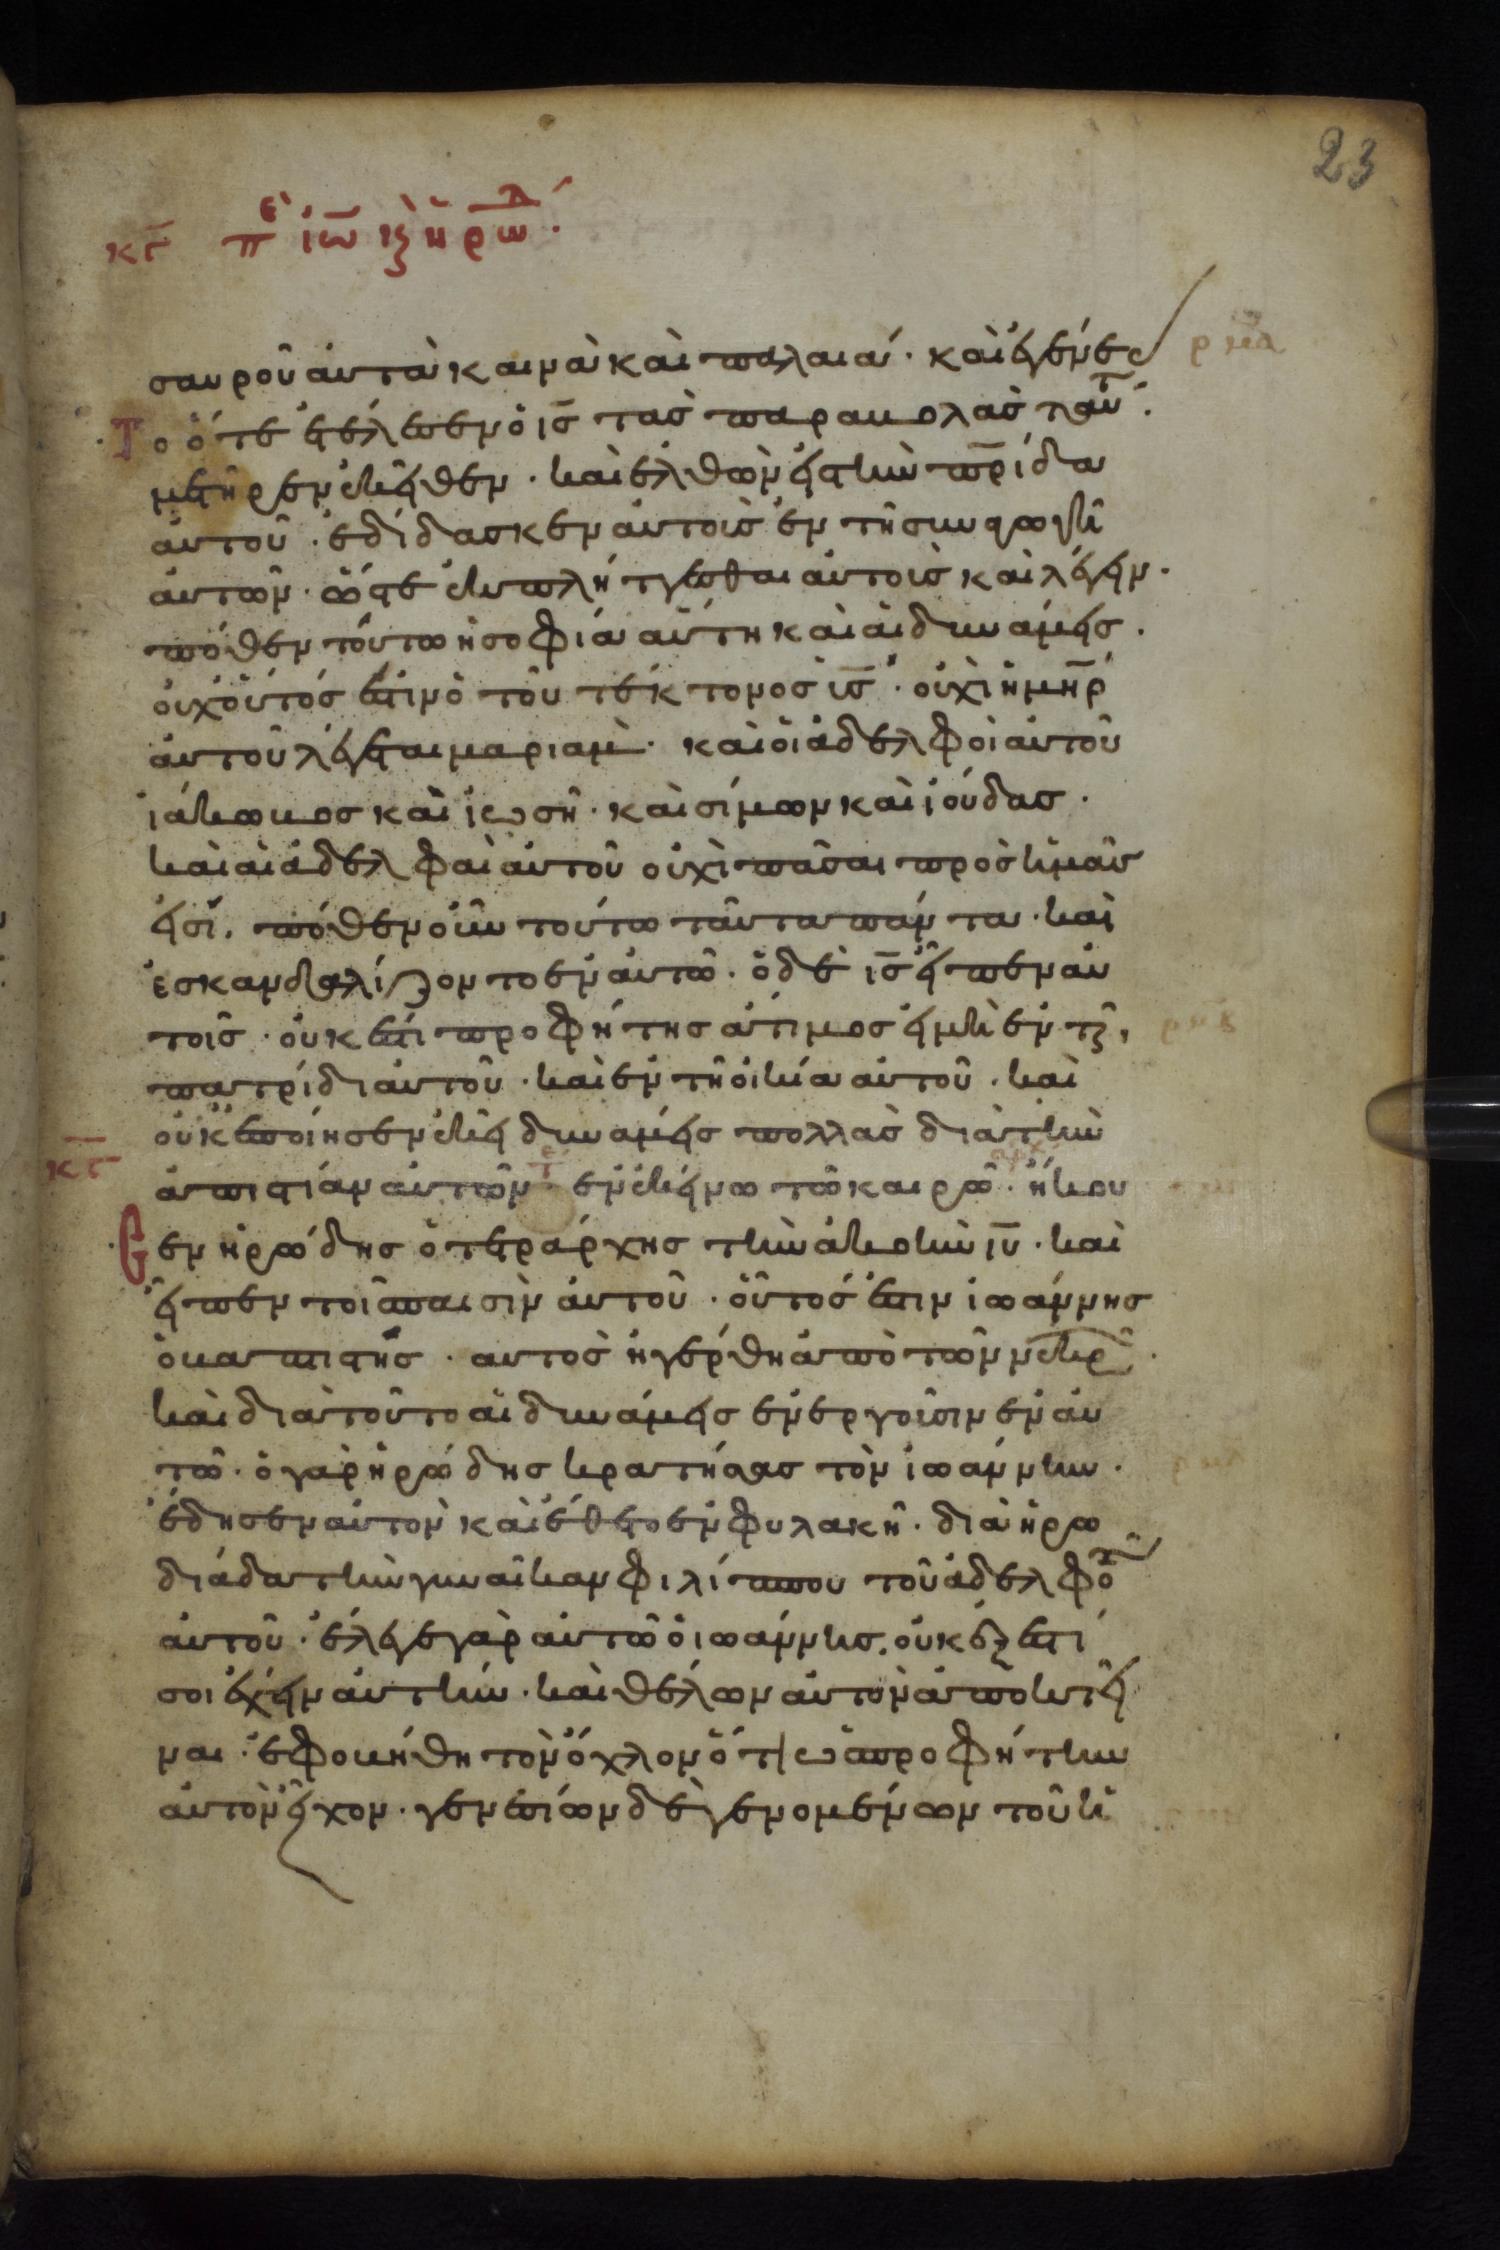 23
κε πε ιω κ ηρω
σαυροῦ αὐτοῦ καινὰ καὶ παλαιά. καὶ ἐγένε
το ὅτε ἐτέλεσεν ὁ ις τὰς παραβολὰς ταυτ.
μετῆρεν ἐκεῖθεν. καὶ ἐλθὼν εἰς τὴν πρίδα
αὐτοῦ. ἐδίδασκεν αὐτοὺς ἐν τῆ συναγωγῆ
αὐτῶν. ὥστε ἐκπλήττεσθαι αὐτοὺς καὶ λέγειν.
πόθεν τούτω ἡ σοφία αὕτη καὶ αἱ δυνάμεις.
οὐχ οὗτός ἐστιν ὁ τοῦ τέκτονος υς. οὐχὶ ἡ μηρ
αὐτοῦ λέγεται μαριὰμ. καὶ οἱ ἀδελφοὶ αὐτοῦ
ἰάκωβος καὶ ἰωσῆ. καὶ σίμων καὶ ἰούδας.
καὶ αἱ ἀδελφαὶ αὐτοῦ οὐχὶ πᾶσαι πρὸς ἡμᾶς
εἰσί. πόθεν οὖν τούτω ταῦτα πάντα. καὶ
ἐσκανδαλίζοντο ἐν αὐτῶ. ὁ δὲ ις εἶπεν αὐ
τοῖς. οὐκ ἔστι προφήτης ἄτιμος εἰ μὴ ἐν τῆ
πατρίδι αὐτοῦ. καὶ ἐν τῆ οἰκία αὐτοῦ. καὶ
οὐκ ἐποίησεν ἐκεῖ δυνάμεις πολλὰς διὰ τὴν
ἀπιστίαν αὐτῶν. ἐν ἐκείνω τῶ καιρῶ. ἤκου
σεν ἡρώδης ὁ τετράρχης τὴν ἀκοὴν ιυ. καὶ
εἶπεν τοῖς παισὶν αὐτοῦ. οὗτός ἐστιν ἰωάννης
ὁ βαπτιστής. αὐτὸς ἠγέρθη ἀπὸ τῶν νεκρ.
καὶ διὰ τοῦτο αἱ δυνάμεις ἐνεργοῦσιν ἐν αὐ
τῶ. ὁ γὰρ ἡρώδης κρατήσας τὸν ἰωάννην.
ἔδησεν αὐτὸν καὶ ἔθετο ἐν φυλακῆ. διὰ ἡρω
διάδα τὴν γυναῖκαν φιλίππου τοῦ ἀδελφοῦ
αὐτοῦ. ἔλεγε γὰρ αὐτῶ ὁ ἰωάννης. οὐκ ἔξεστί
σοι ἔχειν αὐτήν. καὶ θέλων αὐτὸν ἀποκτεῖ
ναι. ἐφοβήθη τὸν ὄχλον ὅτι ὡς προφήτην
αὐτὸν εἶχον. γενεσίων δὲ γενομένων τοῦ ἡ